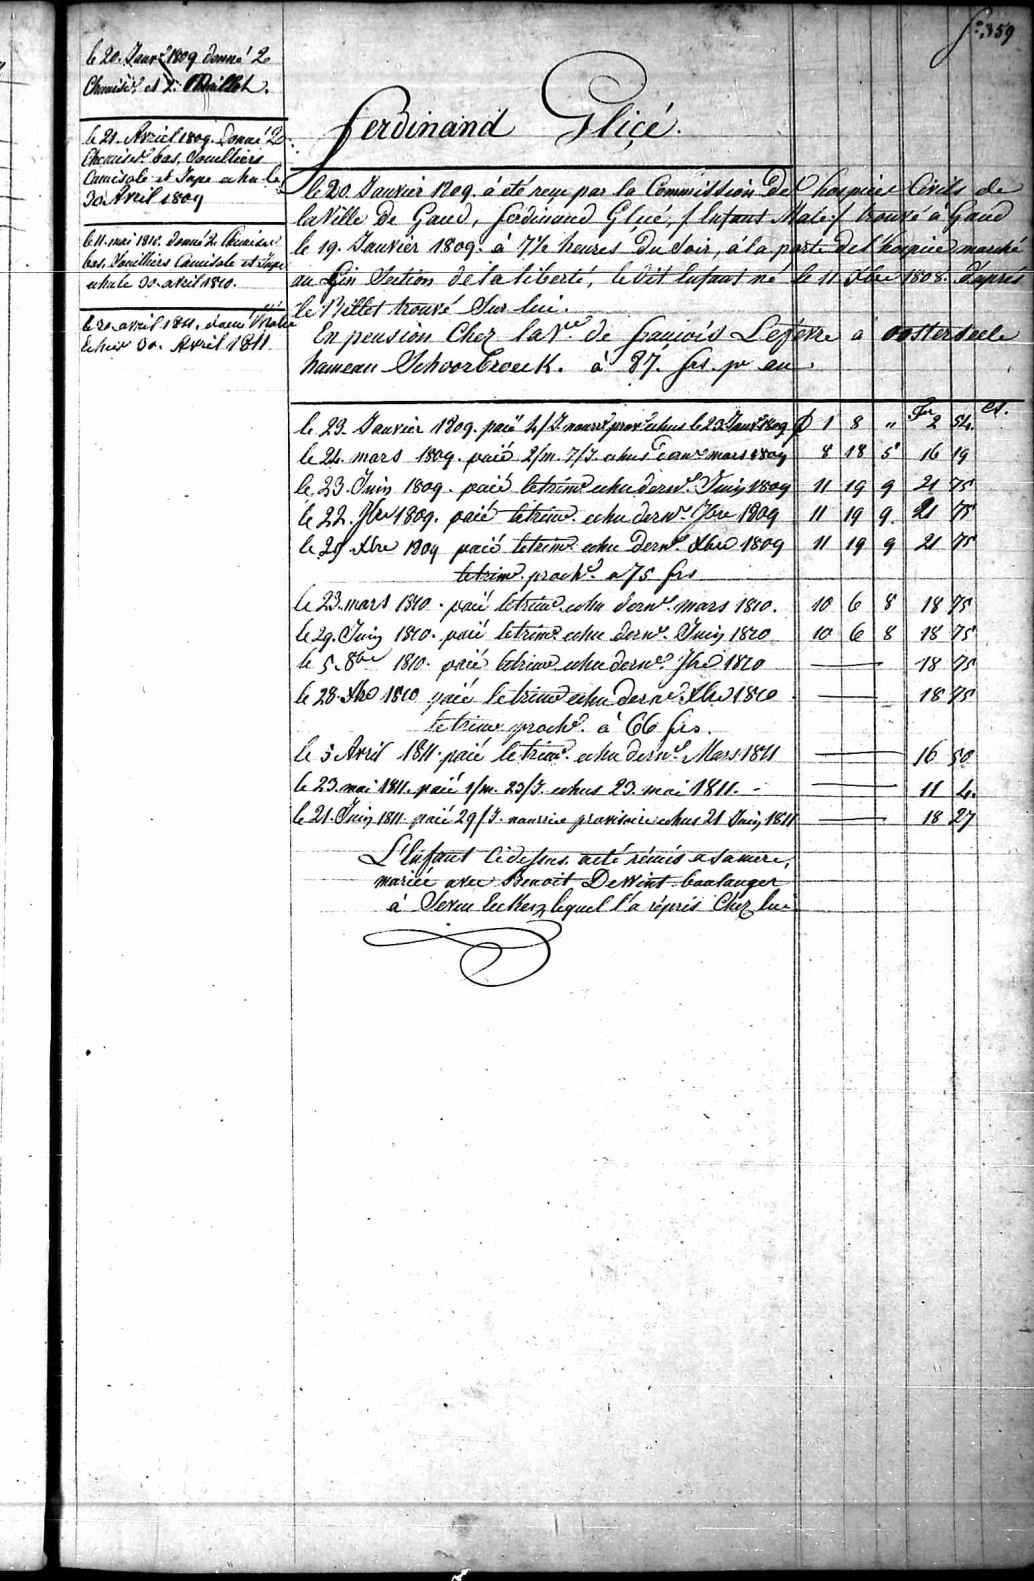 fo. 359
le 20. Janvr 1809 donné 2
Chemises et 2. Maillot.
le 21. Avril 1809. donné 2
Chemises bas, Souilliers
Camisole et Jupe echu le
30 Avril 1809
le 11. mai 1810. donné 2. Chemises
bas, Souilliers Camisole et Jupe
echu le 30. avril 1810.
le 20 avril 1811. donné
Echus 30. Avril 1811.
Ferdinand Gliçé.
le 20. Janvier 1809. à été reçu par la Commission de l'hospice Civils de
la Ville de Gand, ferdinand Gliçé, /Enfant Mâle/ trouvé à Gand
le 19. Janvier 1809. à 7 1/2 heures du Soir, à la porte de l'hospice marché
au Lin Section de la liberté, le dit Enfant né le 11 Xbre 1808. d'après
le Billet trouvé Sur lui.
En pension Chez la Ve. de françois Lefevre à Oosterseele
hameau Schoorbroeck. à 87. frs. pr an
Fr Ct.
le 23. Janvier 1809. paié 4/J nourre provre echus le 23 Janvr 1809 £ 1 8 " 2 54.
le 24. mars 1809. paié 2/m. 7/J echus dernr mars 1809 8 18 5 16 19
le 23. Juin 1809. paié le trime echu dernr. Juin 1809 11 19 9 21 75
le 22. 7bre 1809. paié le trime. echu dernr. 7bre 1809 11 19 9. 21 75
le 29 Xbre 1809 paié le trime echu dernr. Xbre 1809 11 19 9 21 75
le trime. proche. a 75 frs
le 23. mars 1810. paié le trime echu dernr. mars 1810. 10 6 8 18 75
le 29. Juin 1810. paié le trime echu dernr. Juin 1810 10 6 8 18 75
le 5. 8bre 1810. paié le trime echu dernr. 7bre 1810 18 75
le 28. Xbre 1810 paié le trime echu dernr. Xbre 1810 18 75
le trime. proche. à 66 frs.
le 5 Avril 1811. paié le trime. echu dernr. Mars 1811 16 50
le 23. mai 1811. paié 1/m. 23/J. echus 23. mai 1811. 11 4.
le 21. Juin 1811 paié 29/J. nourrice provisoire echus 21 Juin 1811 18 27
L'Enfant Cidessus. a été rémis a sa mere,
mariée avec Benoit De Wint boulanger
à lequel l'a répris Chez lui